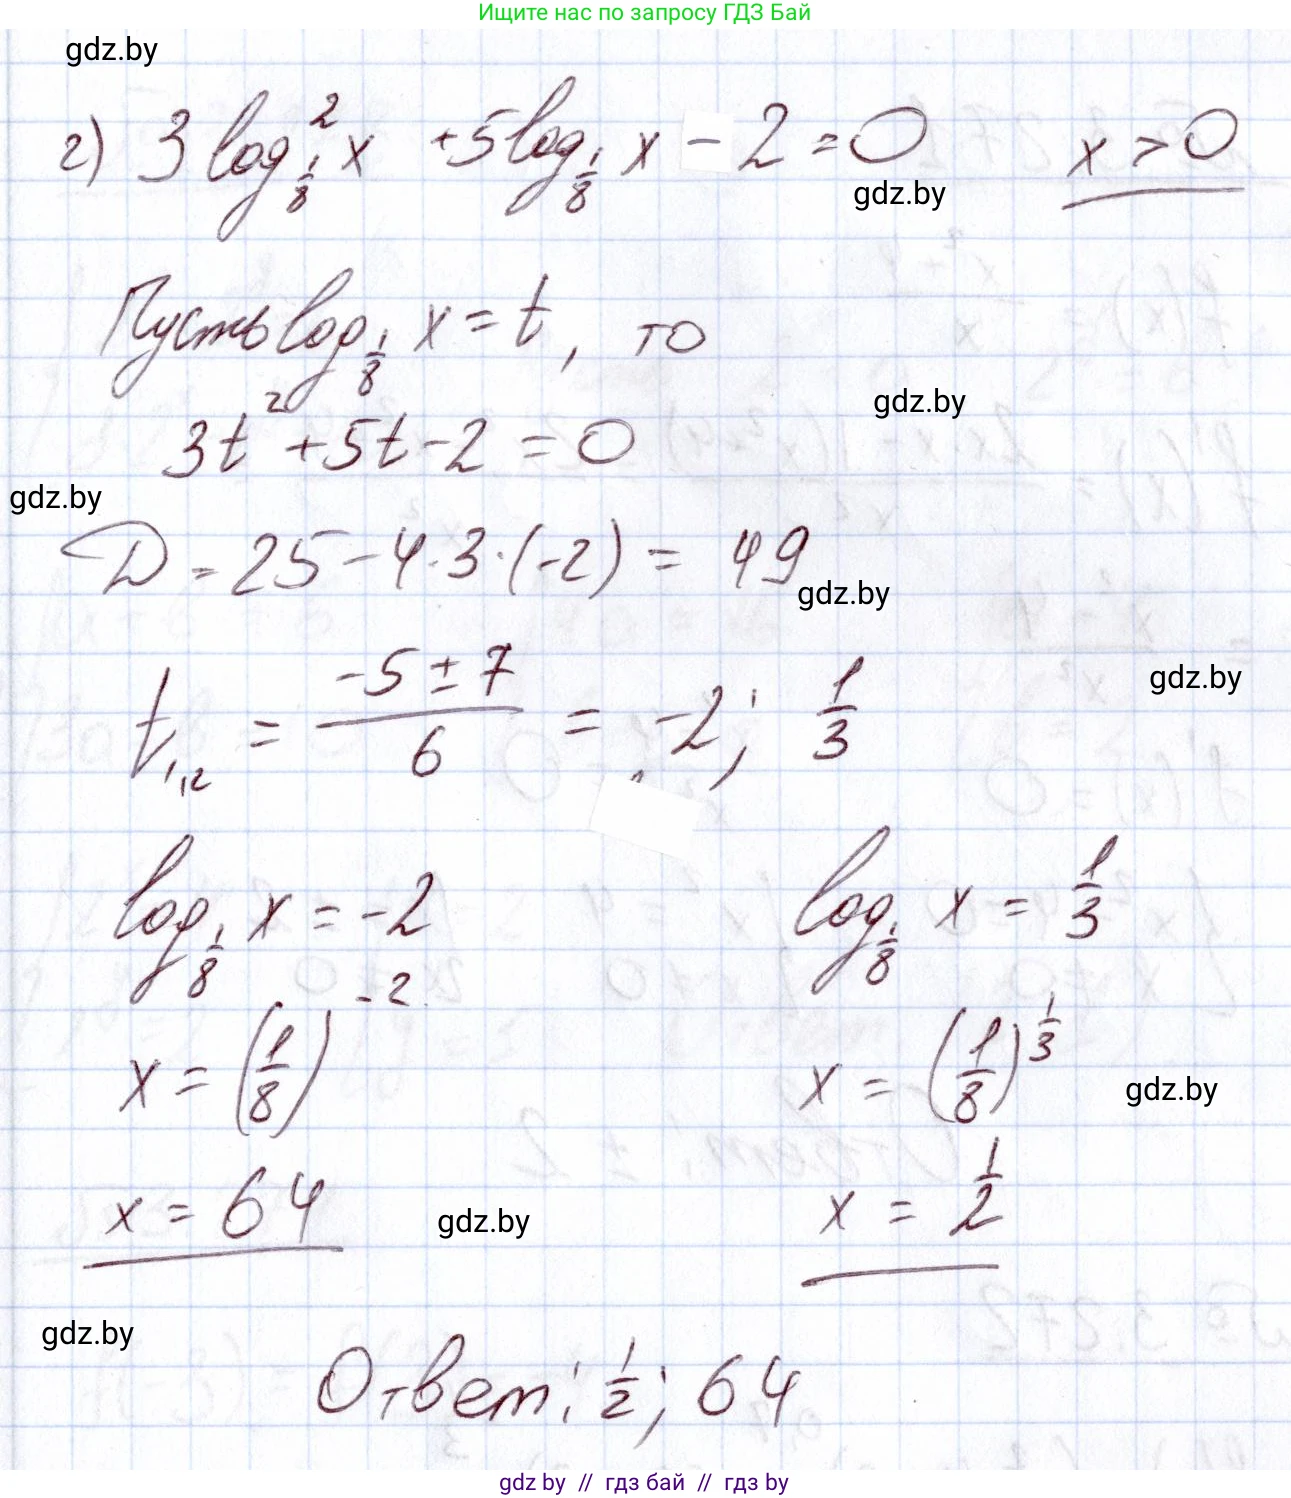 Ищите нас по запросу ГДЗ Бай
gdz.by
г) 3 log²_{1/8} x + 5 log_{1/8} x - 2 = 0    x > 0
gdz.by
Пусть log_{1/8} x = t, то
gdz.by
3t² + 5t - 2 = 0
gdz.by
D = 25 - 4·3·(-2) = 49
gdz.by
gdz.by
t_{1,2} = (-5 ± 7)/6 = -2; 1/3
log_{1/8} x = -2    log_{1/8} x = 1/3
x = (1/8)^{-2}    x = (1/8)^{1/3}
gdz.by
x = 64    x = 1/2
gdz.by
gdz.by
Ответ: 1/2; 64
gdz.by // гдз бай // гдз by